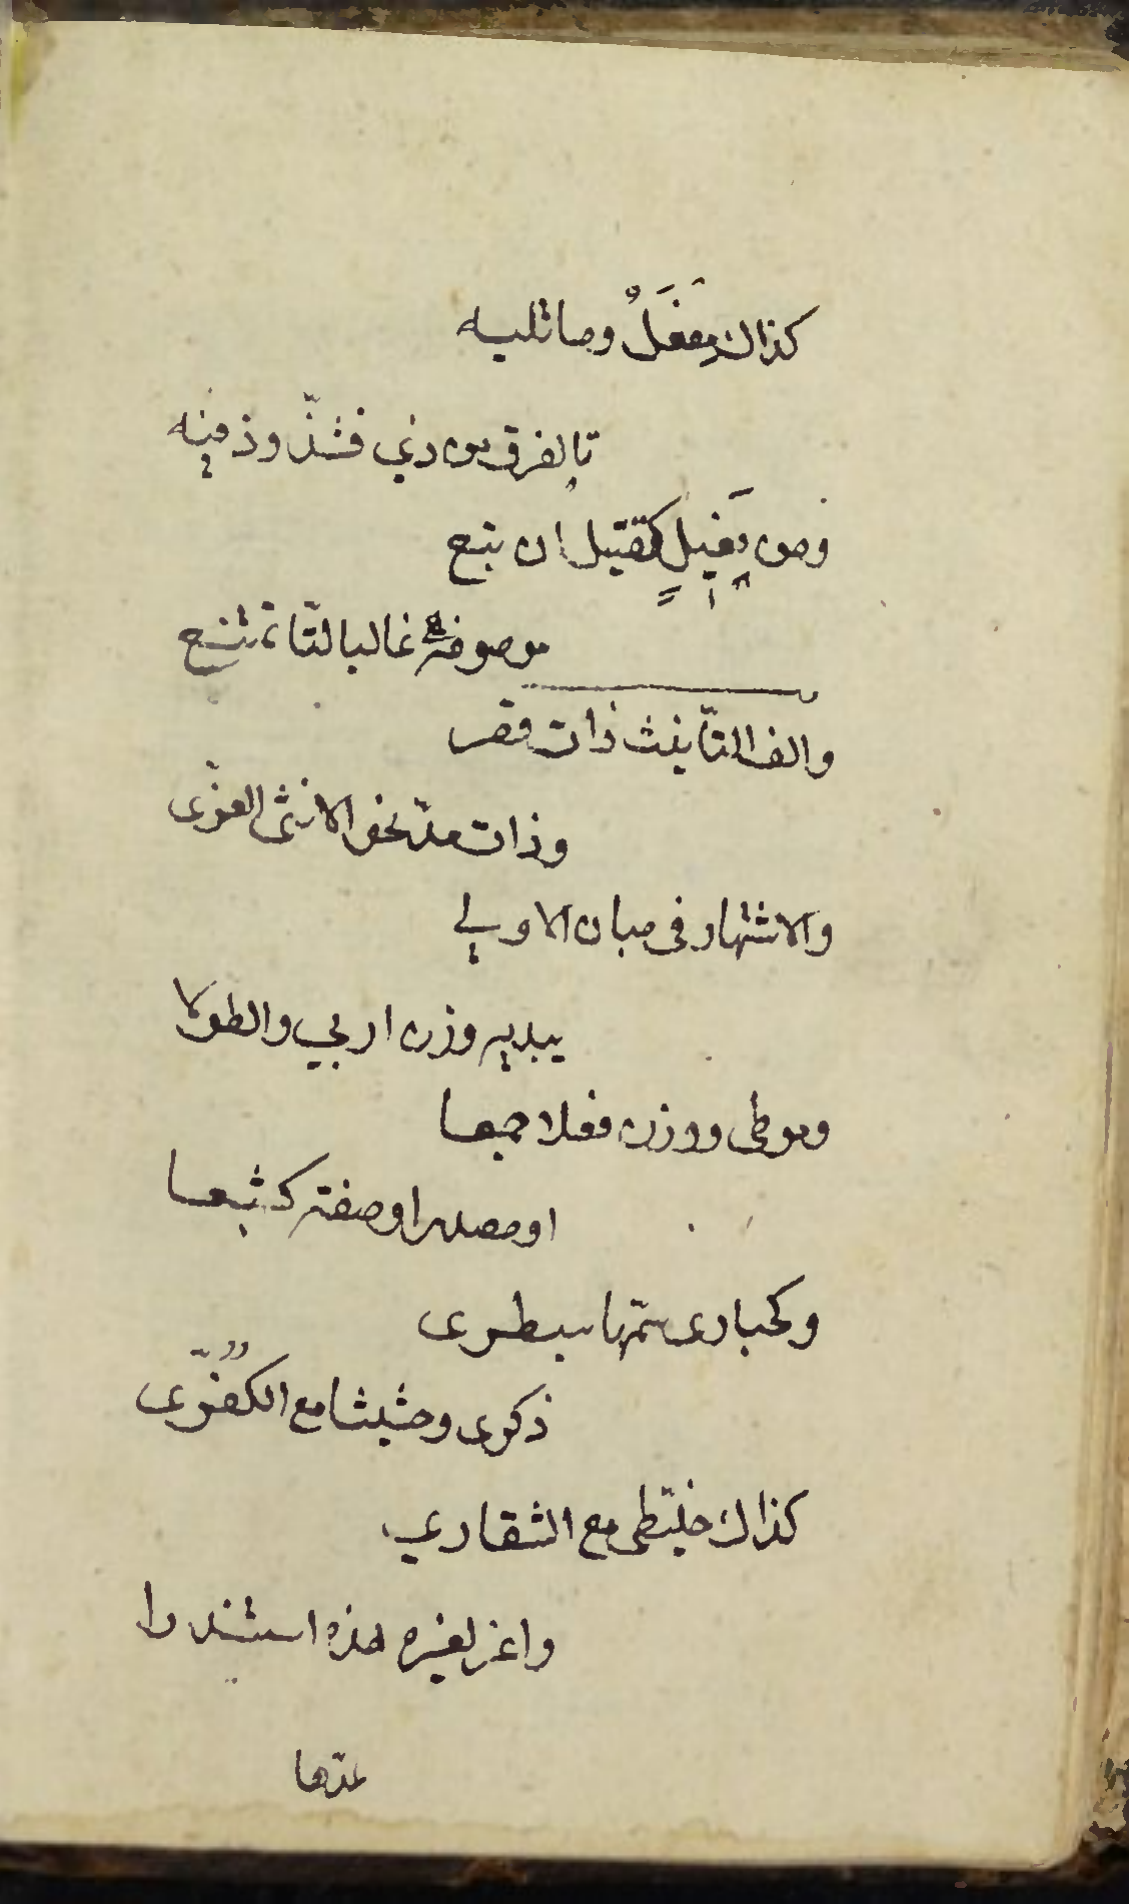 كذاك مفعل وما تليه
تا لفرق من ذي فشذوذ فيه
ومن فعيل كقتيل ان تبع
موصوفه غالبا التا تمتنع
والف التانيث ذات قصر
وذات مد نحو الانثى الغرى
والاشتهار في مبان الاولي
يبديه وزن اربي والطولا
ومرطى ووزن فعلا جمعا
او مصدرا او صفة كشبعا
وكحبارى سمهى سبطرى
ذكرى وحثيثا مع الكفرى
كذاك خليطى مع الشقاري
واعز لغيره هذه استندرا
مدها